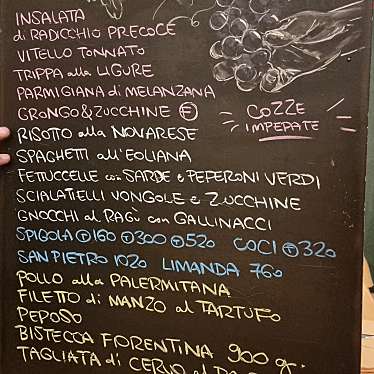 INSALATA
di RADICCHIO PRECOCE
VITELLO TONNATO
TRIPPA alla LIGURE
PARMIGIANA di MELANZANA
GRONGO & ZUCCHINE F
COZZE
IMPEPATE
RISOTTO alla NOVARESE
SPAGHETTI all'EOLIANA
FETTUCCELLE con SARDE e PEPERONI VERDI
SCIALATIELLI VONGOLE e ZUCCHINE
GNOCCHI al RAGÙ con GALLINACCI
SPIGOLA T 160 T 300 T 520 COCI T 320
SAN PIETRO 1020 LIMANDA 760
POLLO alla PALERMITANA
FILETTO di MANZO al TARTUFO
PEPOSO
BISTECCA FIORENTINA 900 gr.
TAGLIATA di CERVO al